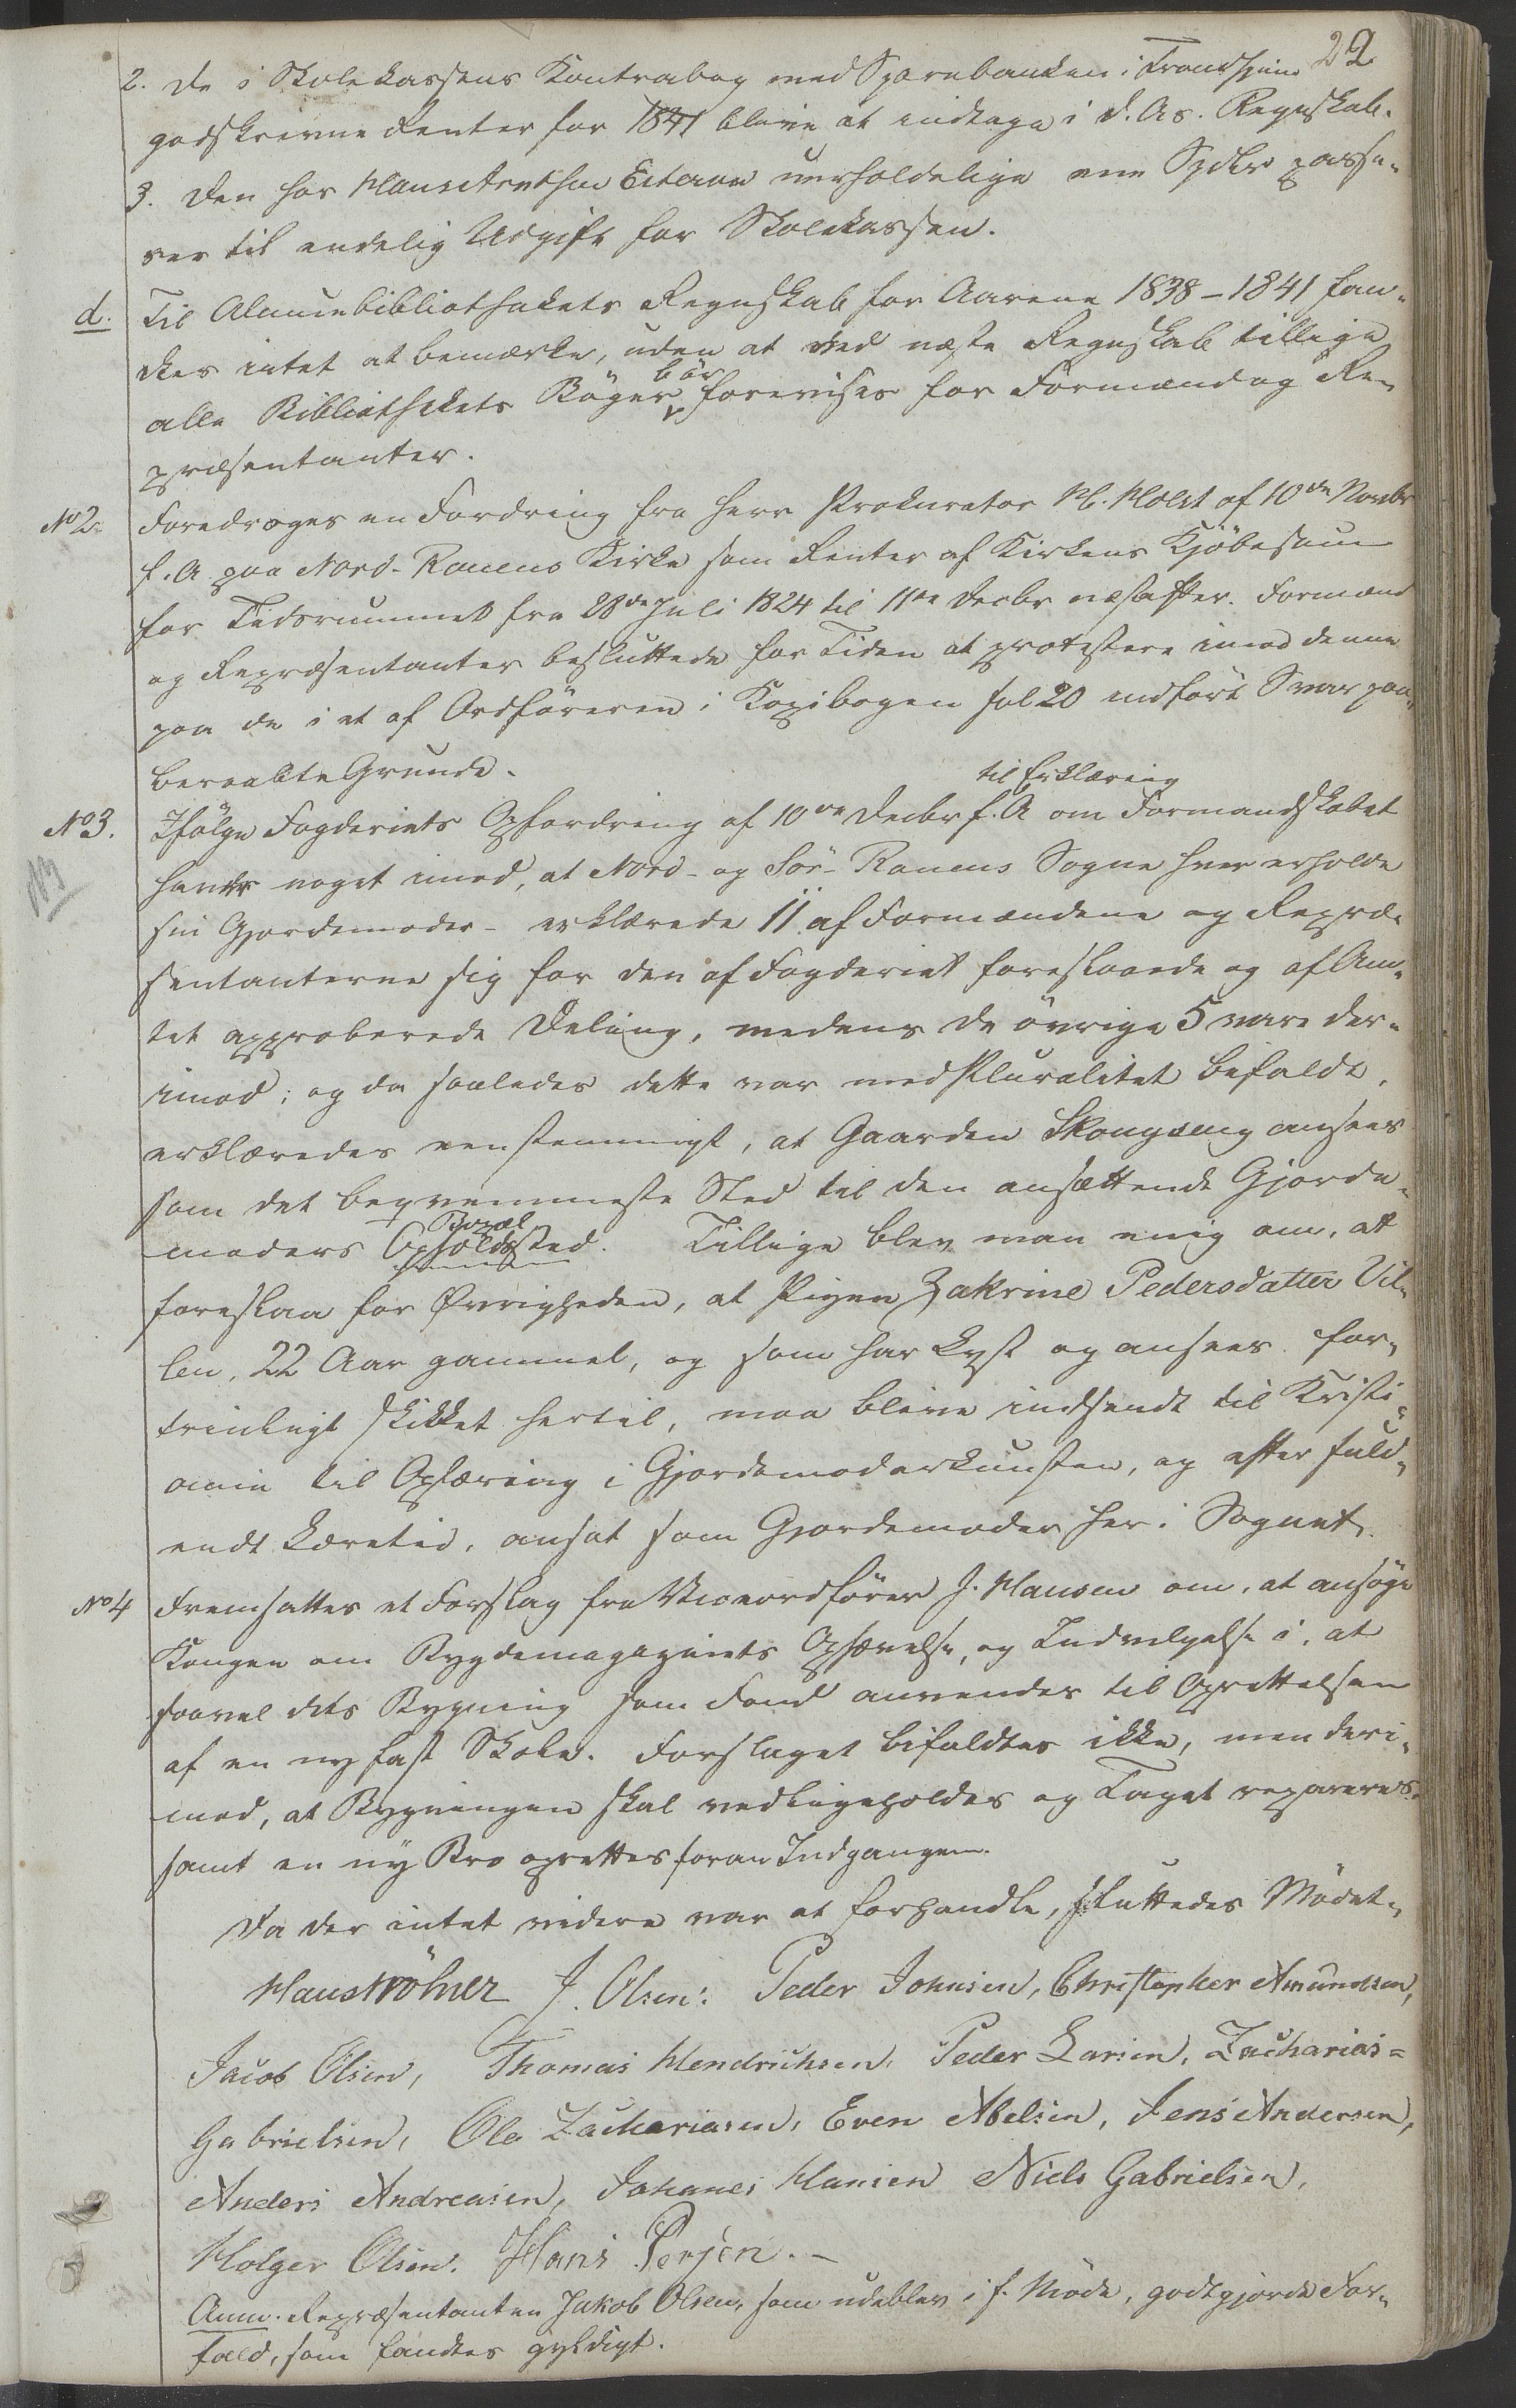 22
2. De i Skolekassens Kontrabog med Sparebanken i Trondhjem
godskrevne Renter for 1841 blive at indtage i d. As. Regnskab.
3. Den hos Hans Arntsen Eiteraae uerholdelige ene Spdlr passe-
rer til endelig Udgift for Skolekassen.
d. Til Almuebibliothekets Regnskab for Aarene 1838-1841 fan-
des intet at bemærke, uden at ved næste Regnskab tillige
bör
alle Bibliothekets Böger forevises for Formænd og Re-
præsentanter.
No 2. Foredroges en Fordring fra Herr Prokurator H. Holst af 10de Novbr
f. A. paa Nord-Ranens Kirke som Renter af Kirkens Kjöbesum
for Tidsrummet fra 28de Juli 1824 til 11te Decbr næstefter. Formænd
og Repræsentanter besluttede for Tiden at protestere imod denne
paa de i et af Ordföreren i Kopibogen fol 20 indfört Svar paa-
beraabte Grunde.
til Erklæring
No 3. Ifölge Fogderiets Opfordring af 10de Decbr f. A om Formandskabet
havde noget imod, at Nord- og Sör-Ranens Sogne hver erholde
sin Gjordemoder - erklærede 11 af Formændene og Repræ-
sentanterne sig for den af Fogderiet foreslaaede og af Am-
tet approberede Deling, medens de övrige 5 vare der-
imod; og da saaledes dette var med Pluralitet bifaldt,
erklæredes eenstemmigt, at Gaarden Skougseng ansees
som det beqvemmeste Sted til den ansættende Gjorde-
Bopæl
moders Opholdssted. Tillige blev man enig om, at
foreslaa for Øvrigheden, at Pigen Zakrine Pedersdatter Vil-
len, 22 Aar gammel, og som har Lyst og ansees for-
trinligt skikket hertil, maa blive indsendt til Kristi-
ania til Oplæring i Gjordemoderkunsten, og efter fuld-
endt Læretid, ansat som Gjordemoder her i Sognet.
No 4 Fremsattes et Forslag fra Viceordförer J. Hansen om, at ansöge
Kongen om Bygdemagazinets Ophævelse, og Indvilgelse i, at
saavel dets Bygning som Fond anvendes til Oprettelsen
af en ny fast Skole. Forslaget bifaldtes ikke, men deri-
mod, at Bygningen skal vedligeholdes og Taget repareres
samt en ny Bro oprettes foran Indgangen.
Da der intet videre var at forhandle, sluttedes Mödet.
J. Olsen. Peder Johnsen, Christopher Amundsen,
Jacob Olsen, Thomas Hendrichsen, Peder Larsen, Zacharias=
Gabrielsen, Ole Zachariasen, Even Abelsen, Jens Andersen,
Anders Andreasen, Johanes Hansen Niels Gabrielsen,
Holger Olsen. Hans Persen.-
Anm. Repræsentanten Jakob Olsen, som udeblev i f. Möde, godtgjorde For-
fald, som fandtes gyldigt.